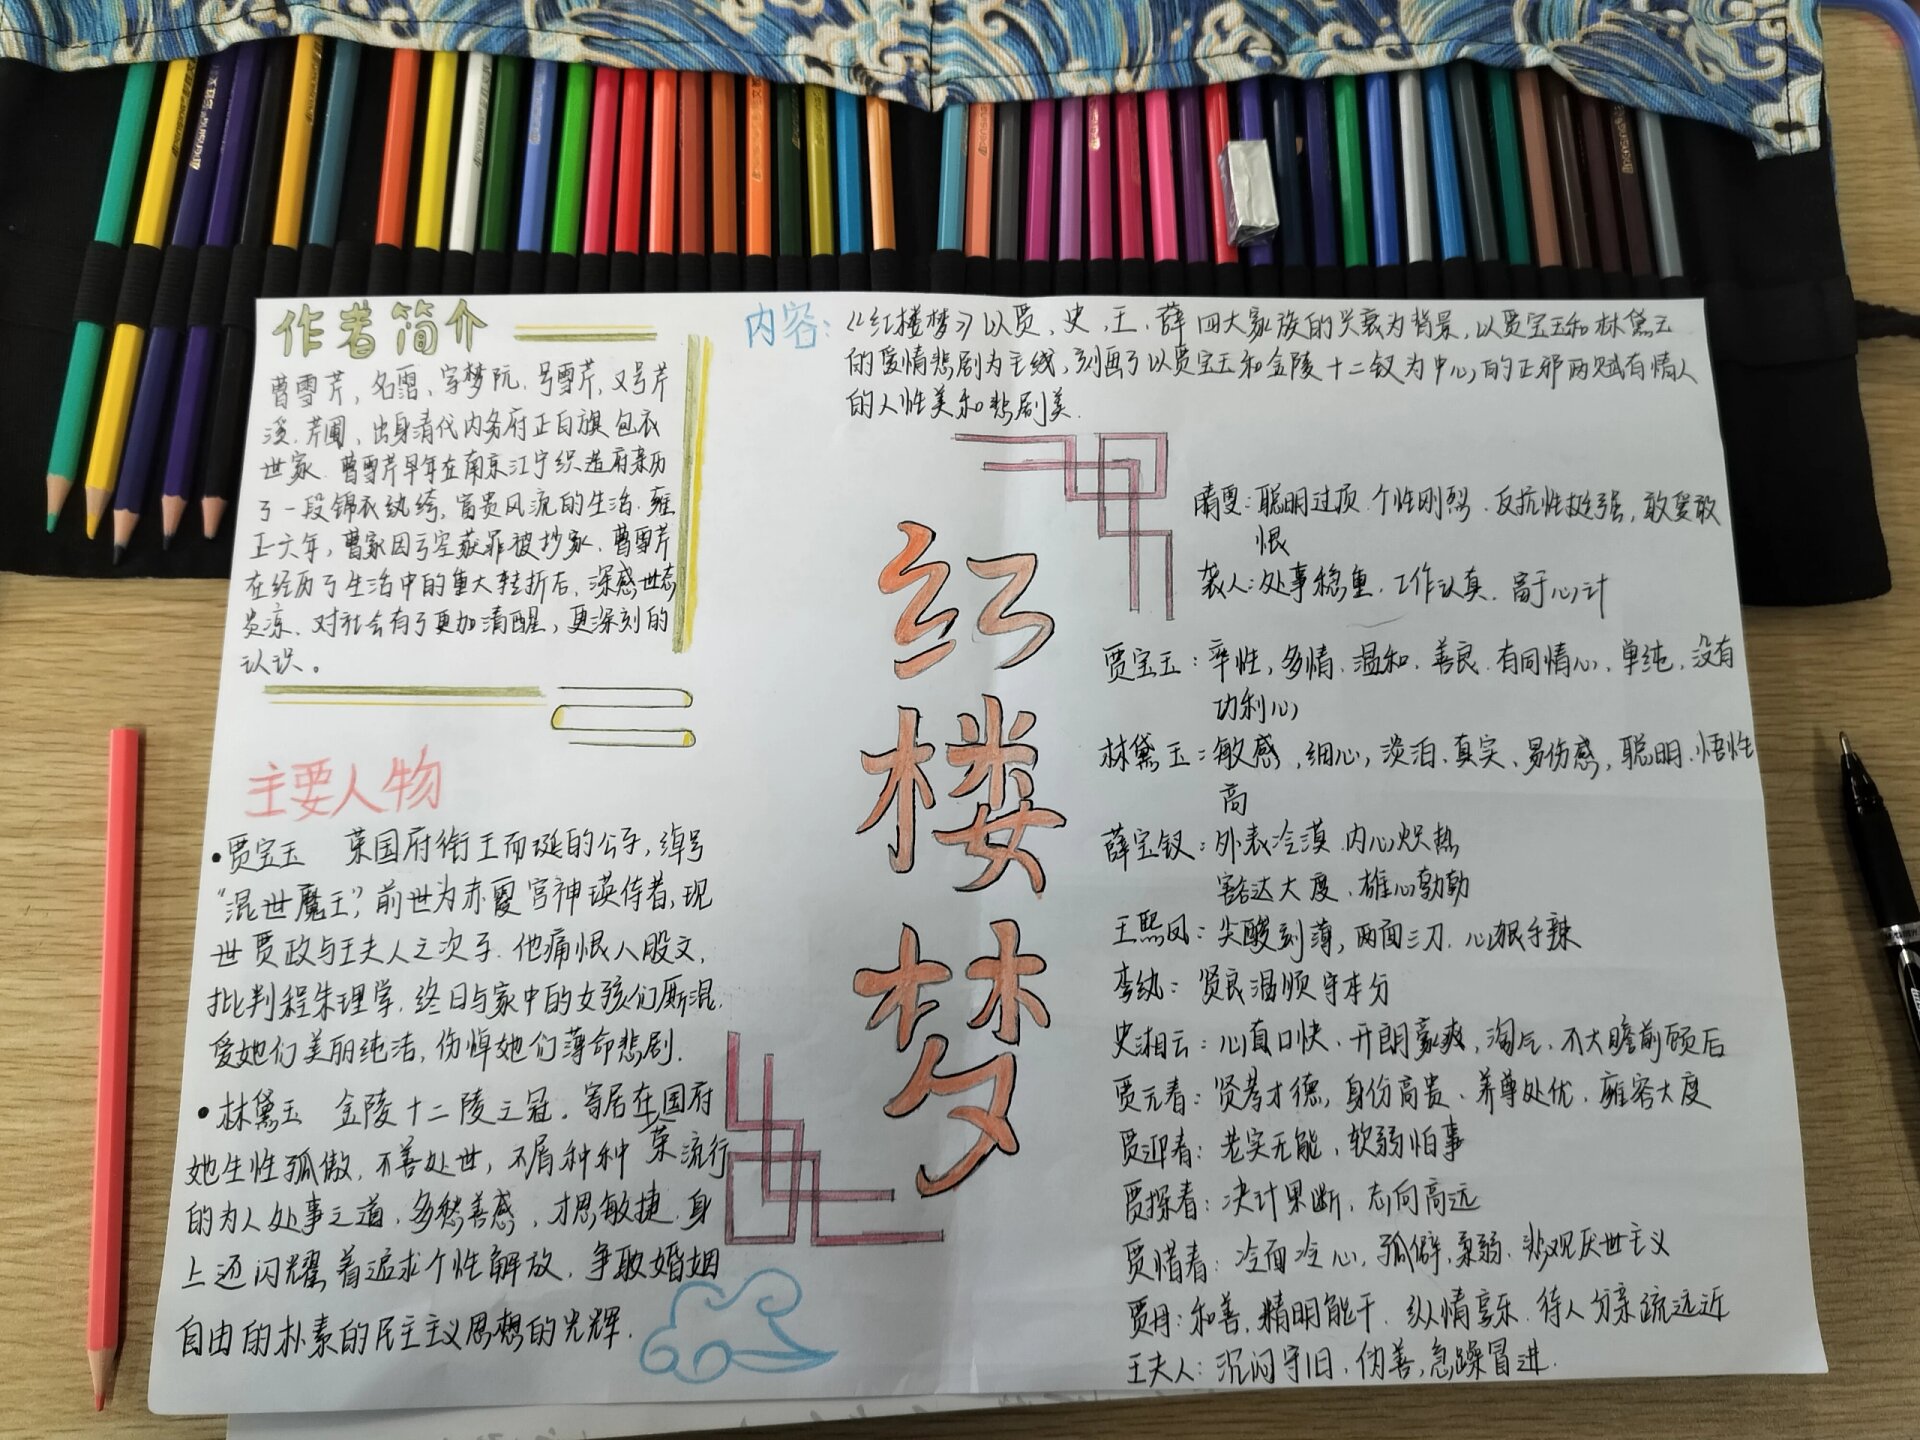 作者简介
曹雪芹，名霑、字梦阮，号雪芹，又号芹
溪、芹圃、出身清代内务府正白旗包衣
世家．曹雪芹早年在南京江宁织造府亲历
了一段锦衣纨绔，富贵风流的生活．雍
正六年，曹家因亏空获罪被抄家．曹雪芹
在经历了生活中的重大挫折后，深感世态
炎凉、对社会有了更加清醒，更深刻的
认识。
主要人物
•贾宝玉 荣国府衔玉而诞的公子，绰号
“混世魔王”，前世为赤霞宫神瑛侍者，现
世贾政与王夫人之次子．他痛恨八股文，
批判程朱理学．终日与家中的女孩们厮混．
爱她们美丽纯洁，伤悼她们薄命悲剧．
•林黛玉 金陵十二陵之冠．寄居在国府
荣
她生性孤傲，不善处世，不屑种种 流行
的为人处事之道，多愁善感，才思敏捷．身
上还闪耀着追求个性解放，争取婚姻
自由的朴素的民主主义思想的光辉．
红楼梦
内容：《红楼梦》以贾、史、王、薛四大家族的兴衰为背景，以贾宝玉和林黛玉
的爱情悲剧为主线，刻画了以贾宝玉和金陵十二钗为中心的正邪两赋有情人
的人性美和悲剧美．
晴雯：聪明过顶．个性刚烈．反抗性挺强，敢爱敢
恨
袭人：处事稳重．工作认真．富于心计
贾宝玉：率性，多情．温和．善良．有同情心．单纯，没有
功利心
林黛玉：敏感，细心，淡泊．真实、易伤感，聪明．悟性
高
薛宝钗：外表冷漠．内心炽热
豁达大度．雄心勃勃
王熙凤：尖酸刻薄，两面三刀．心狠手辣
李纨：贤良温顺守本分
史湘云：心直口快．开朗豪爽，淘气．不大瞻前顾后
贾元春：贤孝才德，身份高贵、养尊处优．雍容大度
贾迎春：老实无能，软弱怕事
贾探春：决计果断，志向高远
贾惜春：冷面冷心，孤僻，柔弱．悲观厌世主义
贾母：和善．精明能干．纵情享乐．待人分亲疏远近
王夫人：沉闷守旧．伪善，急躁冒进．